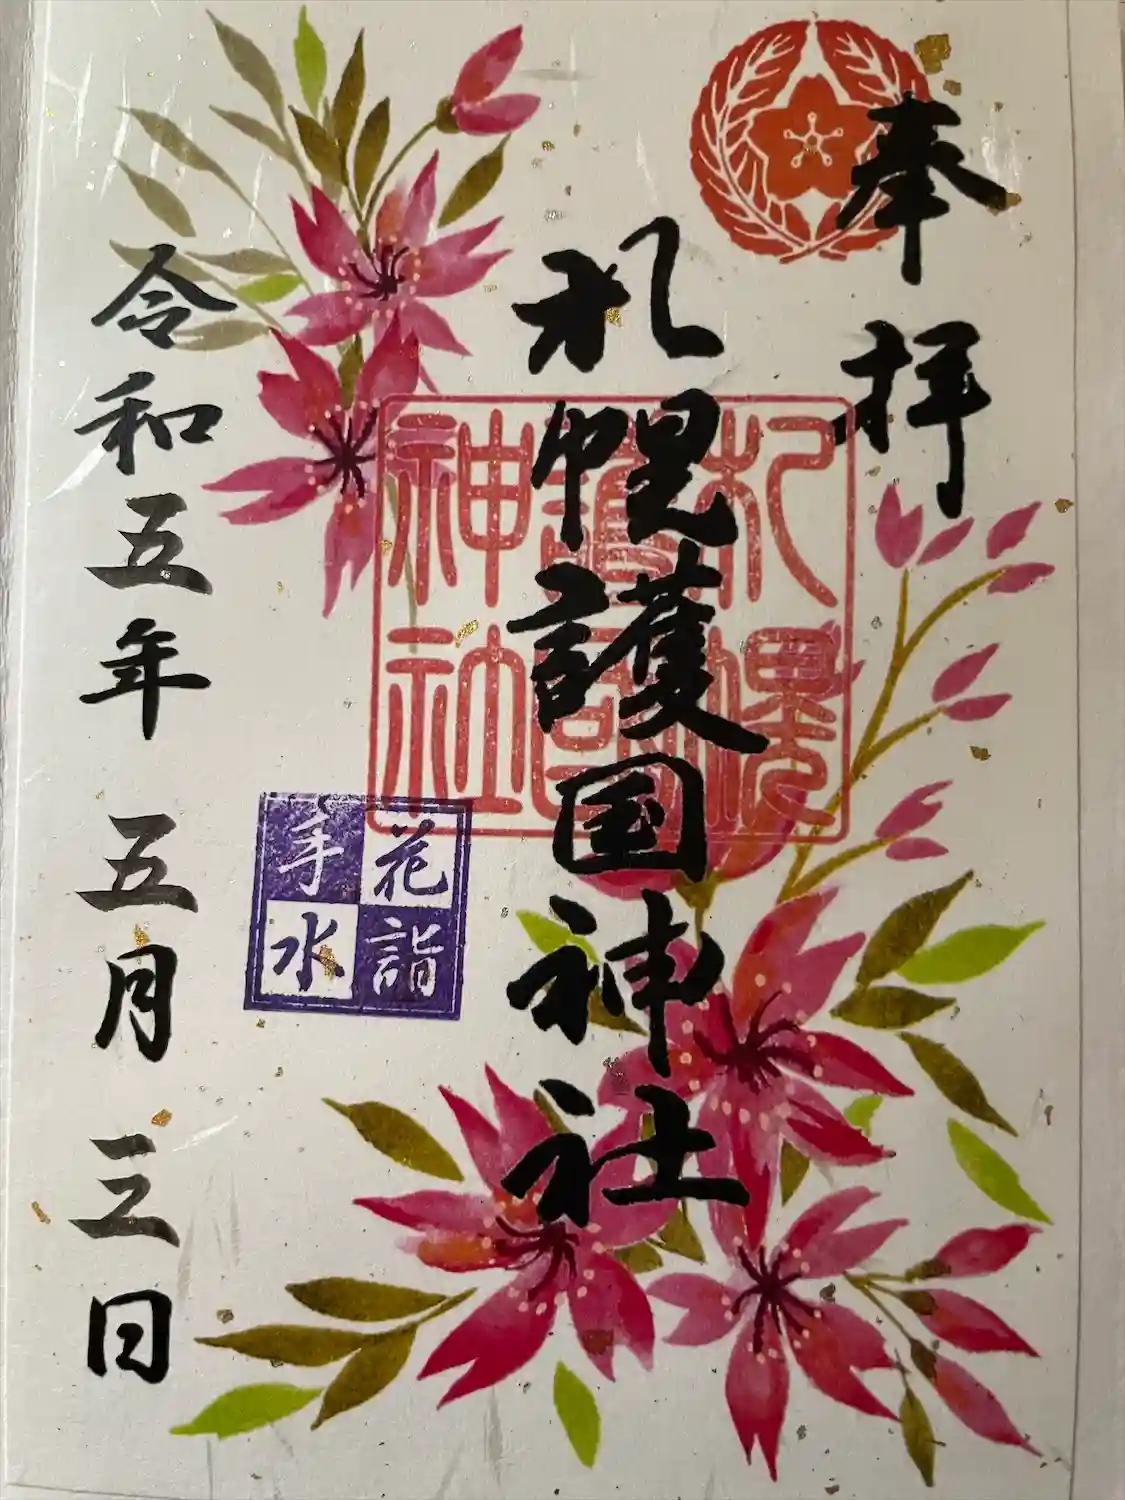 奉拝
札幌護国神社
札幌
護国
神社
花詣
手水
令和五年五月三日